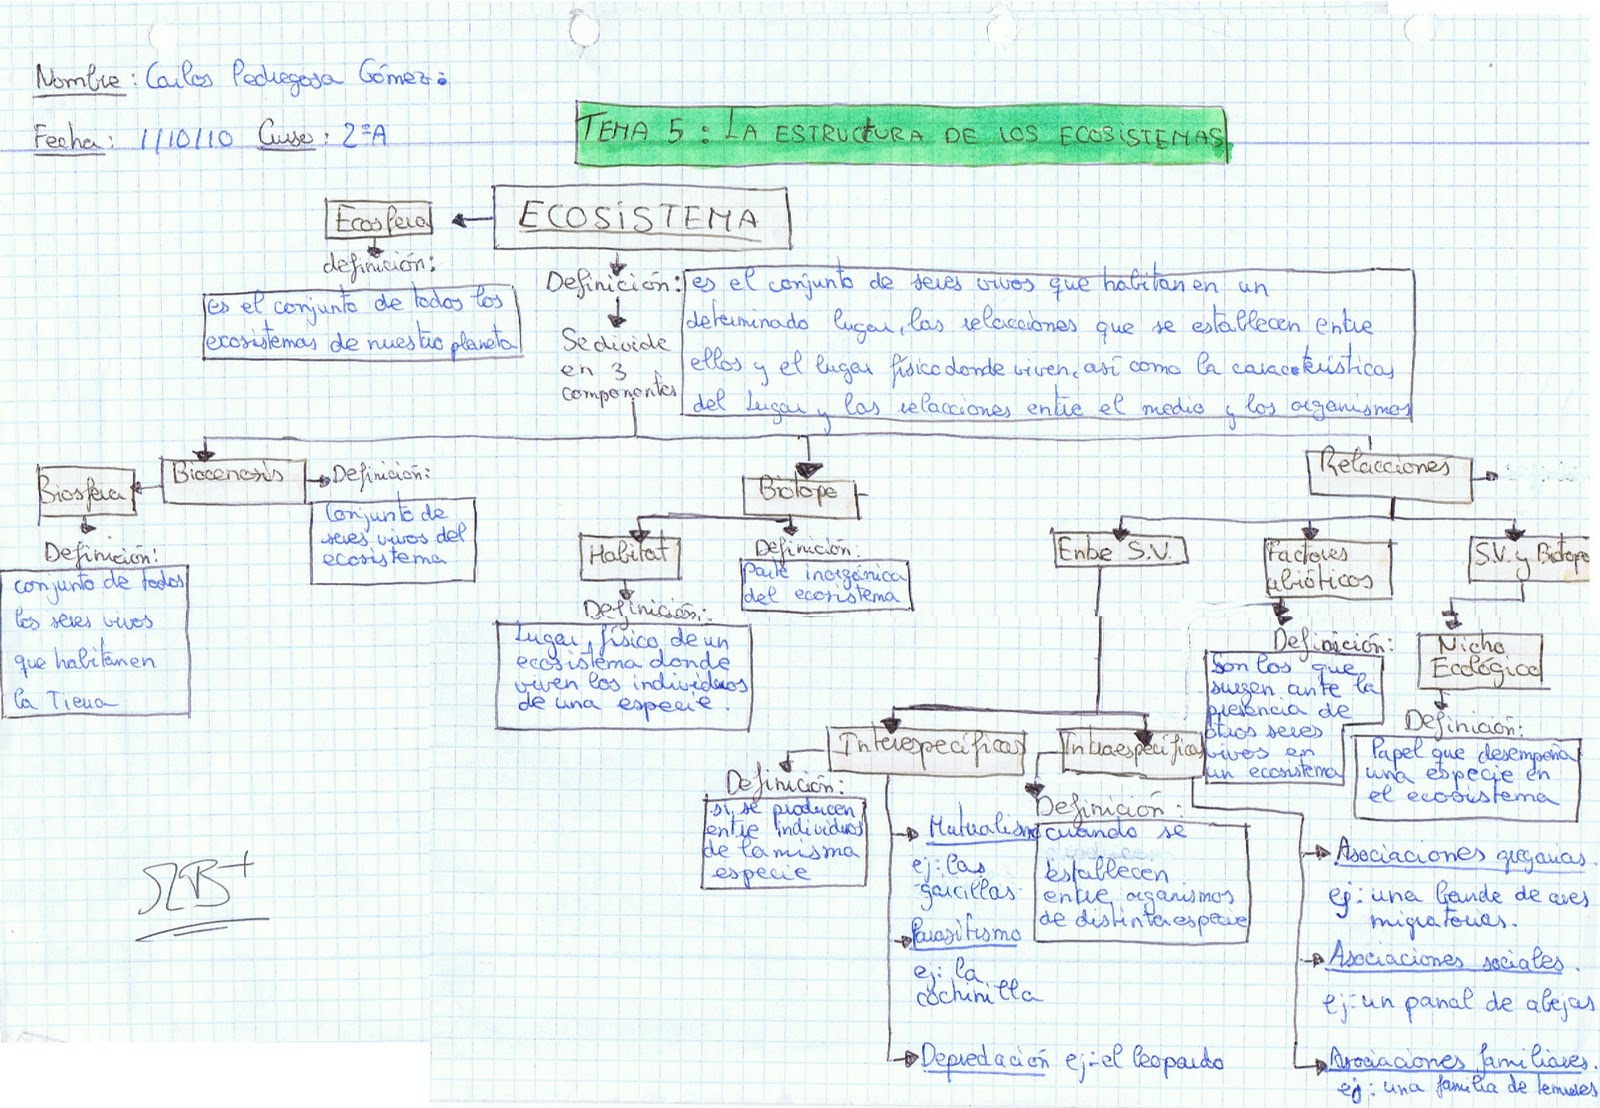 Nombre: Carlos Pedregosa Gómez.
Fecha: 1/10/10 Curso: 2ºA
TEMA 5: LA ESTRUCTURA DE LOS ECOSISTEMAS
ECOSISTEMA
Ecosfera
definición:
es el conjunto de todos los
ecosistemas de nuestro planeta
Definición:
es el conjunto de seres vivos que habitan en un
determinado lugar, las relacciones que se establecen entre
ellos y el lugar físico donde viven, así como la caracoterísticas
del lugar y las relacciones entre el medio y los organismos
Se divide
en 3
componentes
Biocenosis
Definición:
Conjunto de
seres vivos del
ecosistema
Biosfera
Definición:
conjunto de todos
los seres vivos
que habitan en
la Tierra
Biotope
Habitat
Definición:
Lugar, físico de un
ecosistema donde
viven los individuos
de una especie.
Definición:
Parte inorgánica
del ecosistema
Relacciones
Entre S.V.
Factores
abióticos
S.V. y Biotope
Definición:
Son los que
surgen ante la
presencia de
otros seres
vivos en
un ecosistema
Nicho
Ecológico
Definición:
Papel que desempeña
una especie en
el ecosistema
Interespecíficas
Definición:
si se producen
entre individuos
de la misma
especie
Mutualismo
ej: las
garcillas
Parasitismo
ej: la
cochinilla
Depredación ej: el leopardo
Intraespecíficas
Definición:
cuando se
establecen
entre organismos
de distinta especie
Asociaciones gregarias.
ej: una bande de aves
migratorias.
Asociaciones sociales.
ej: un panal de abejas
Asociaciones familiares.
ej: una familia de lemures